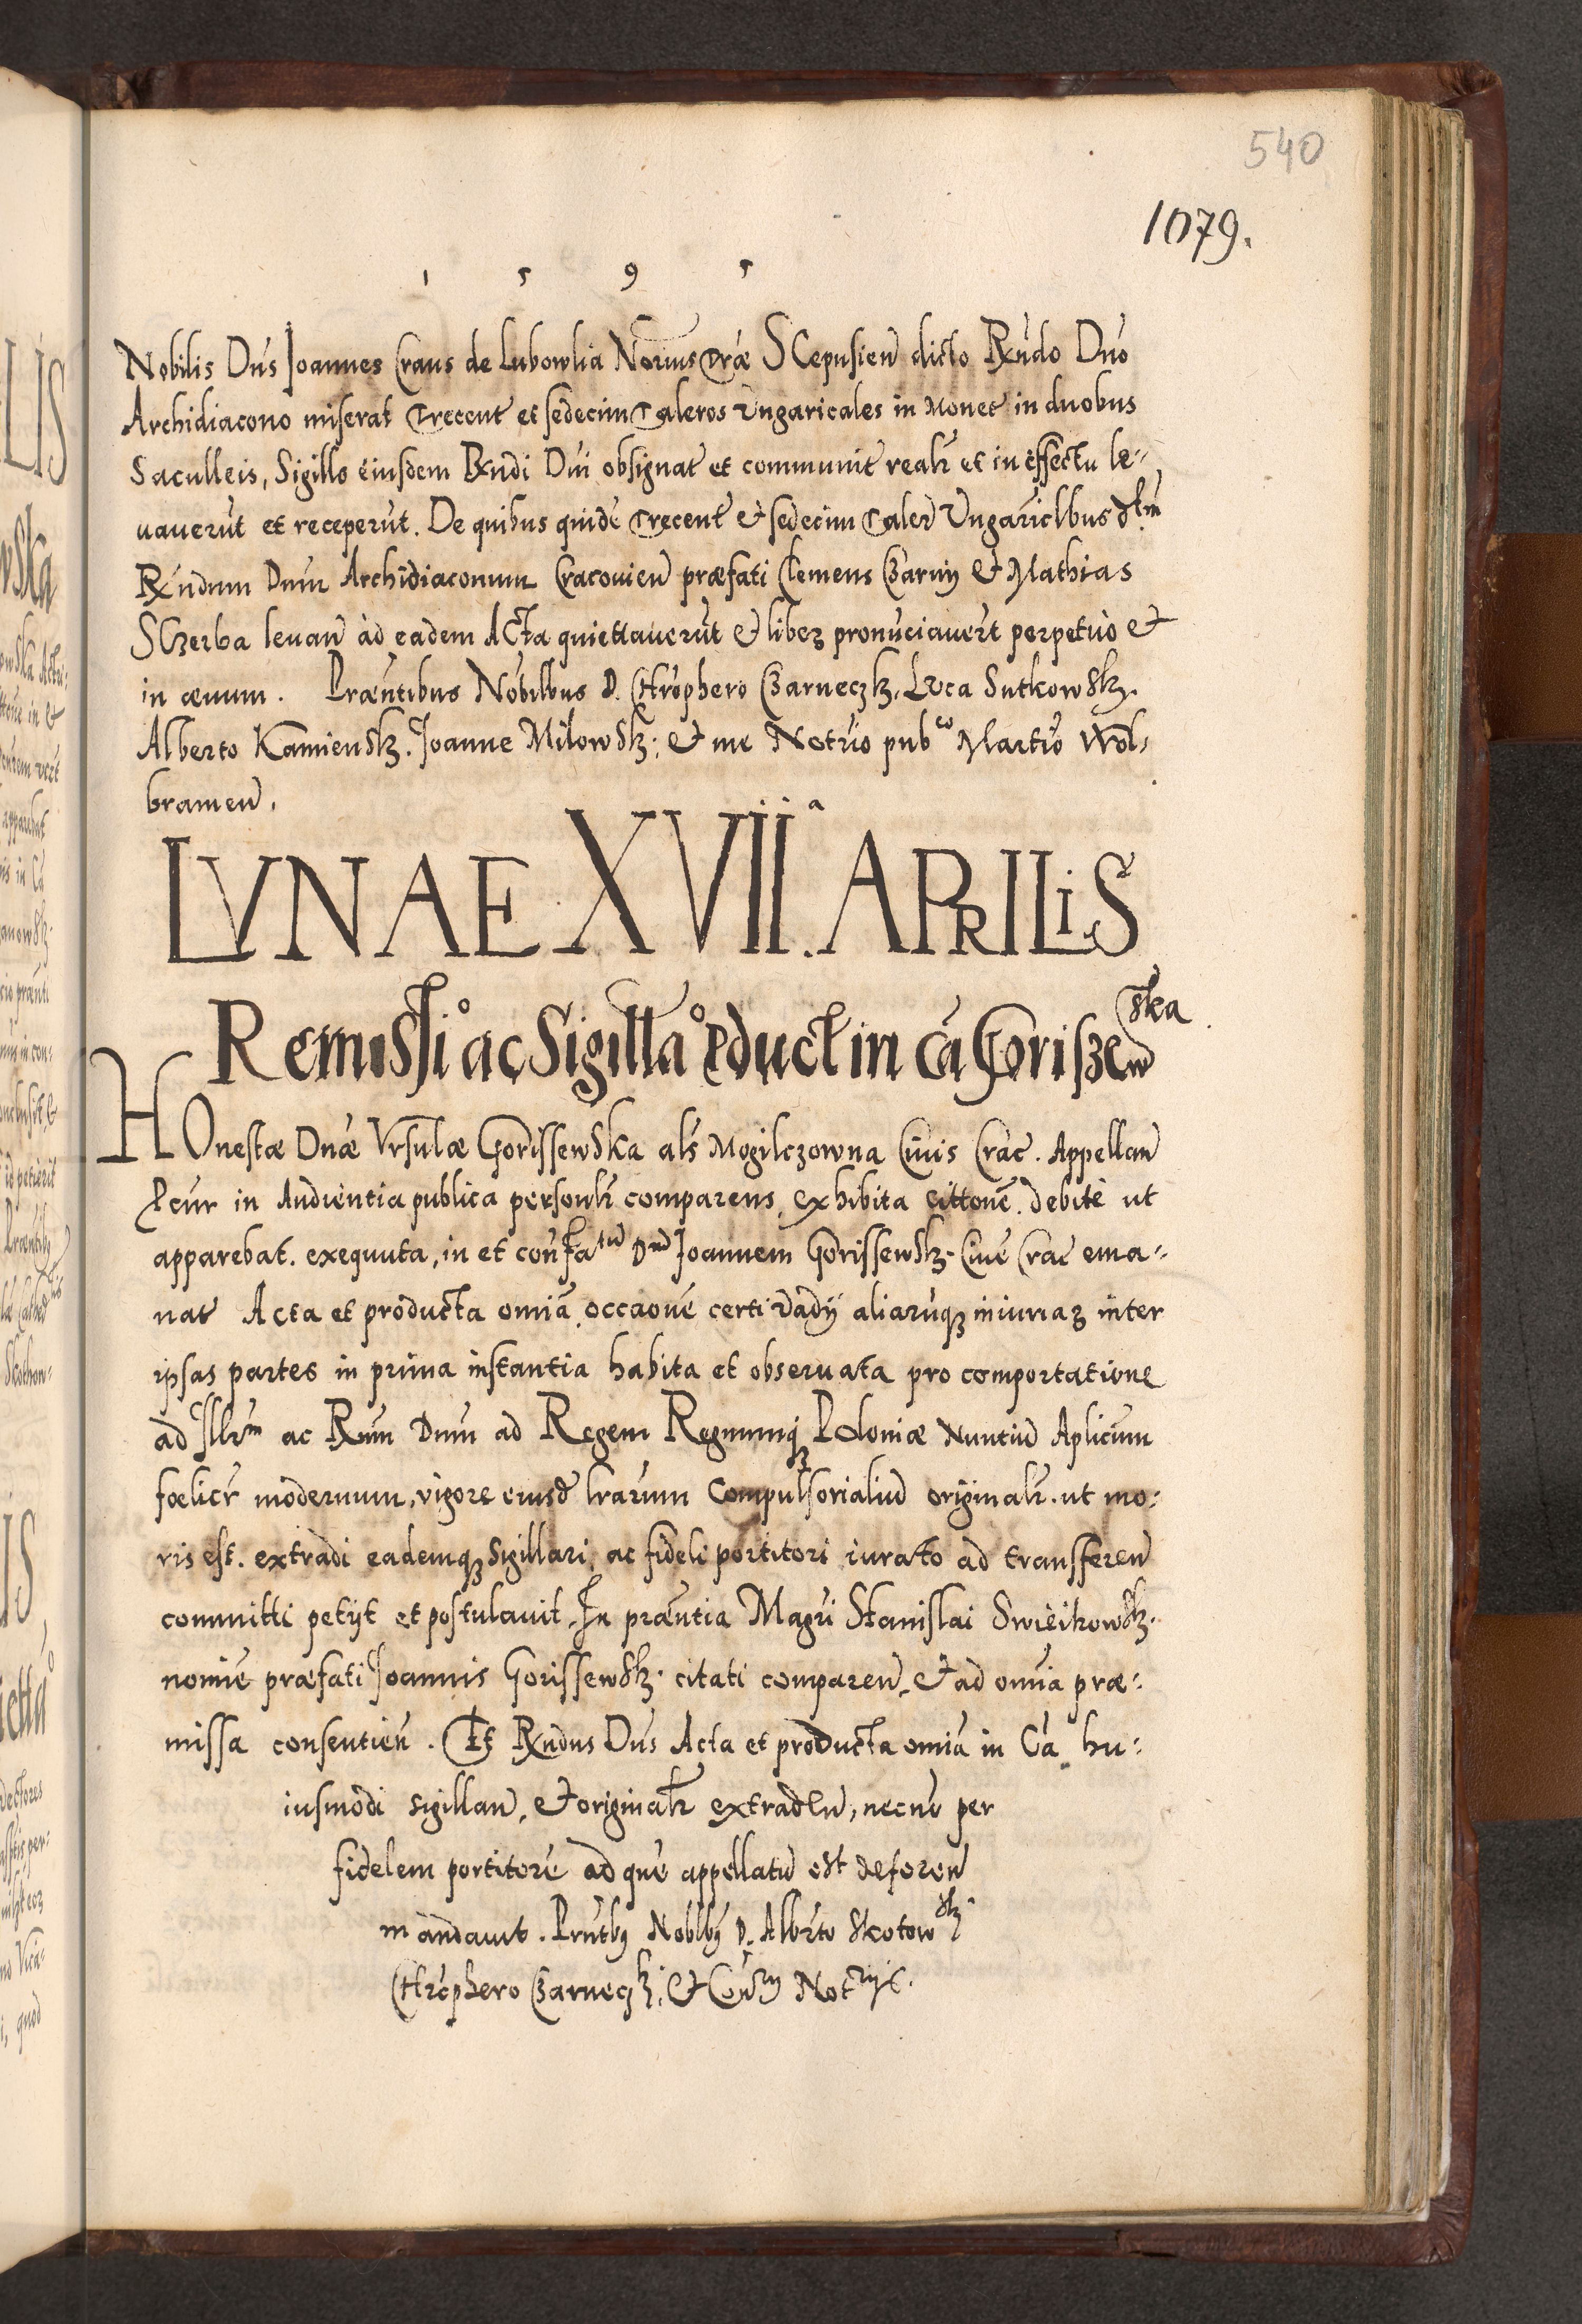 540
1079.
1 5 9 5
Nobilis Dns Joannes Craus de Lubowlia Norius Træ SCepusien dicto Rndo Dno
Archidiacono miserat Trecent et sedecim Taleros Ungaricales in Monet in duobus
Sacculeis, Sigillo eiusdem Rndi Dni obsignat et communit realr et in effectu le-
uauerut et receperut. De quibus quide Trecent & sedecim Taler Ungariclbus
Rndum Dnm Archidiaconum Cracouien præfati Clemens Czarny & Mathias
SCzerba leuan ad eadem Acta quiettauerut & liberz pronuciauert perpetuo &
in æuum. Præntibus Nobilbus D. CHrophero Czarneczk. Luca Sutkowsk.
Alberto Kamiensk. Joanne Milowsk: & me Notrio pubco Martio Wol-
bramen.
LVNAE XVIIa. APRILiS
Remissio ac Sigillao pduct in ca Gorisze wska
HOnestæ Dnæ Vrsulæ Gorissewska als Mogilczowna Ciuis Crac. Appellan
Pcur in Audientia publica personlr comparens, exhibita cittone debite ut
apparebat. exequuta, in et con Fatu Dnu Joannem Gorissewsk. Ciue Crac ema-
nat Acta et producta omia occaone certi Vadij aliaruqz iniuriaz inter
ipsas partes in prima instantia habita et obseruata pro comportatione
ad Illrm ac Rmm Dnm ad Regem Regnumqz Poloniæ Nuntiu Aplicum
fœlicr modernum, vigore eiusd lrarum Compulsorialiu originalr. ut mo-
ris est. extradi eademqz Sigillari, ac fideli portitori iurato ad transferen
committi petijt et postulauit. In præntia Magri Stanislai Swieikowsk.
nomie præfati Joannis Gorissewsk. citati comparen, & ad omia præ-
missa consentien. Et Rndus Dns Acta et producta omia in Ca hu-
iusmodi sigillan, & originalr extraden, necno per
fidelem portitore ad que appellatu est deferen
mandauit. Prntbz Noblbz D. Albrto Skotowsk.
CHrophero Czarneczk. & Notrijs.